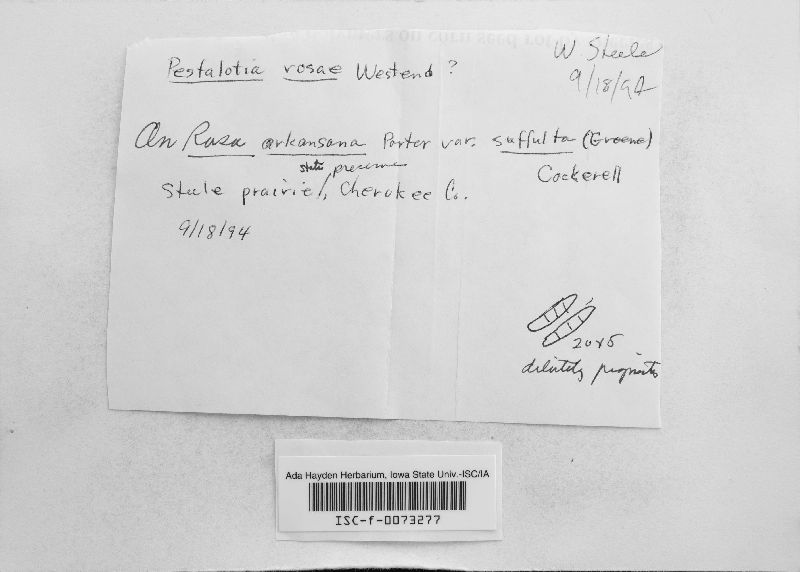 Pestalotia rosae Westend ?
W. Steele
9/18/94
On Rosa arkansana Porter var. suffulta (Greene)
Cockerell
state preserve
Steele prairie, Cherokee Co.
9/18/94
20x5
dilutely
Ada Hayden Herbarium, Iowa State Univ.-ISC/IA
ISC-f-0073277